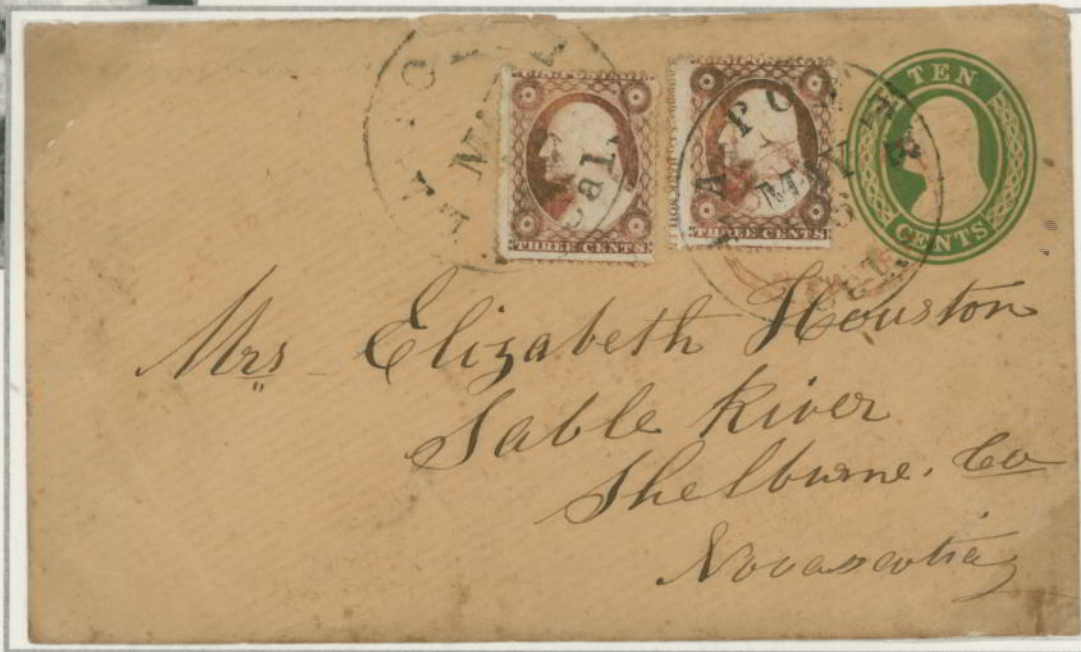 TEN
CENTS
THREE CENTS
THREE CENTS
Cal.
Mrs Elizabeth Houston
Sable River
Shelburne. Co
Novascotia